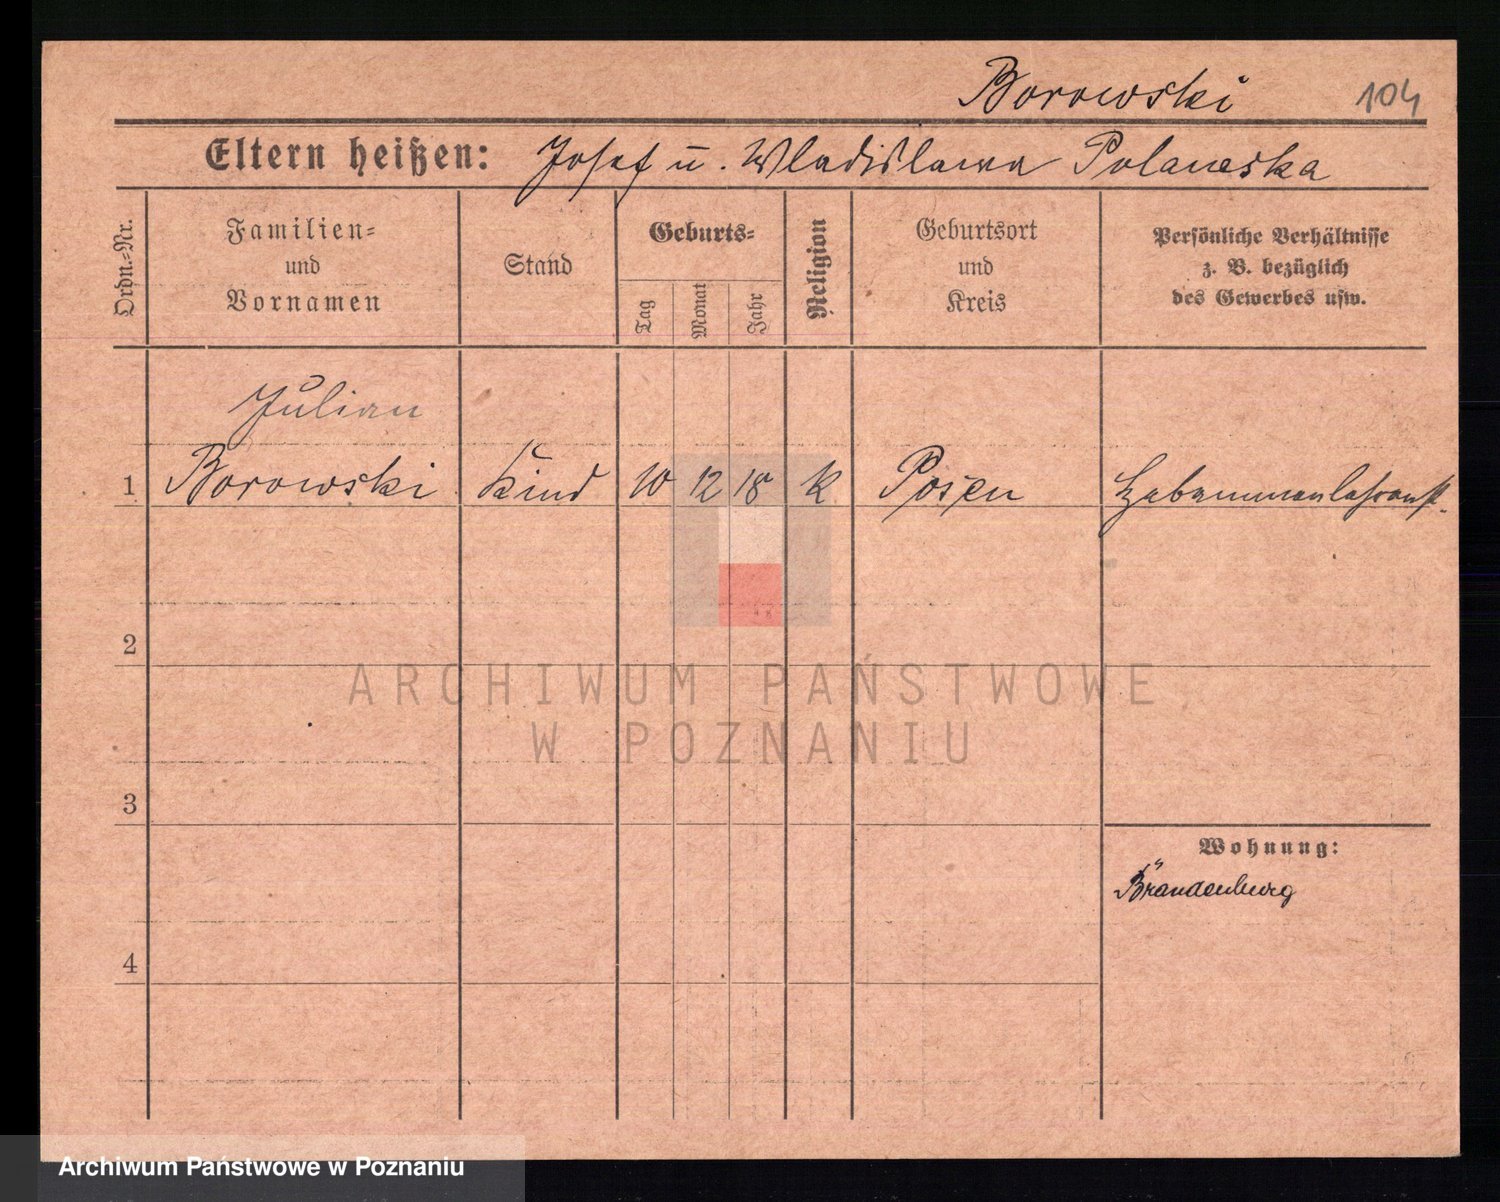 Borowski
104
Eltern heißen: Josef u. Wladislawa Polaneska
Ordn.-Nr.
Familien-
und
Vornamen
Stand
Geburts-
Tag
Monat
Jahr
Religion
Geburtsort
und
Kreis
Persönliche Verhältnisse
z. B. bezüglich
des Gewerbes usw.
Julian
1 Borowski Kind 10 12 18 k Posen Hebammenlehranst.
2
ARCHIWUM PAŃSTWOWE
W POZNANIU
3
Wohnung:
Brandenburg
4
Archiwum Państwowe w Poznaniu